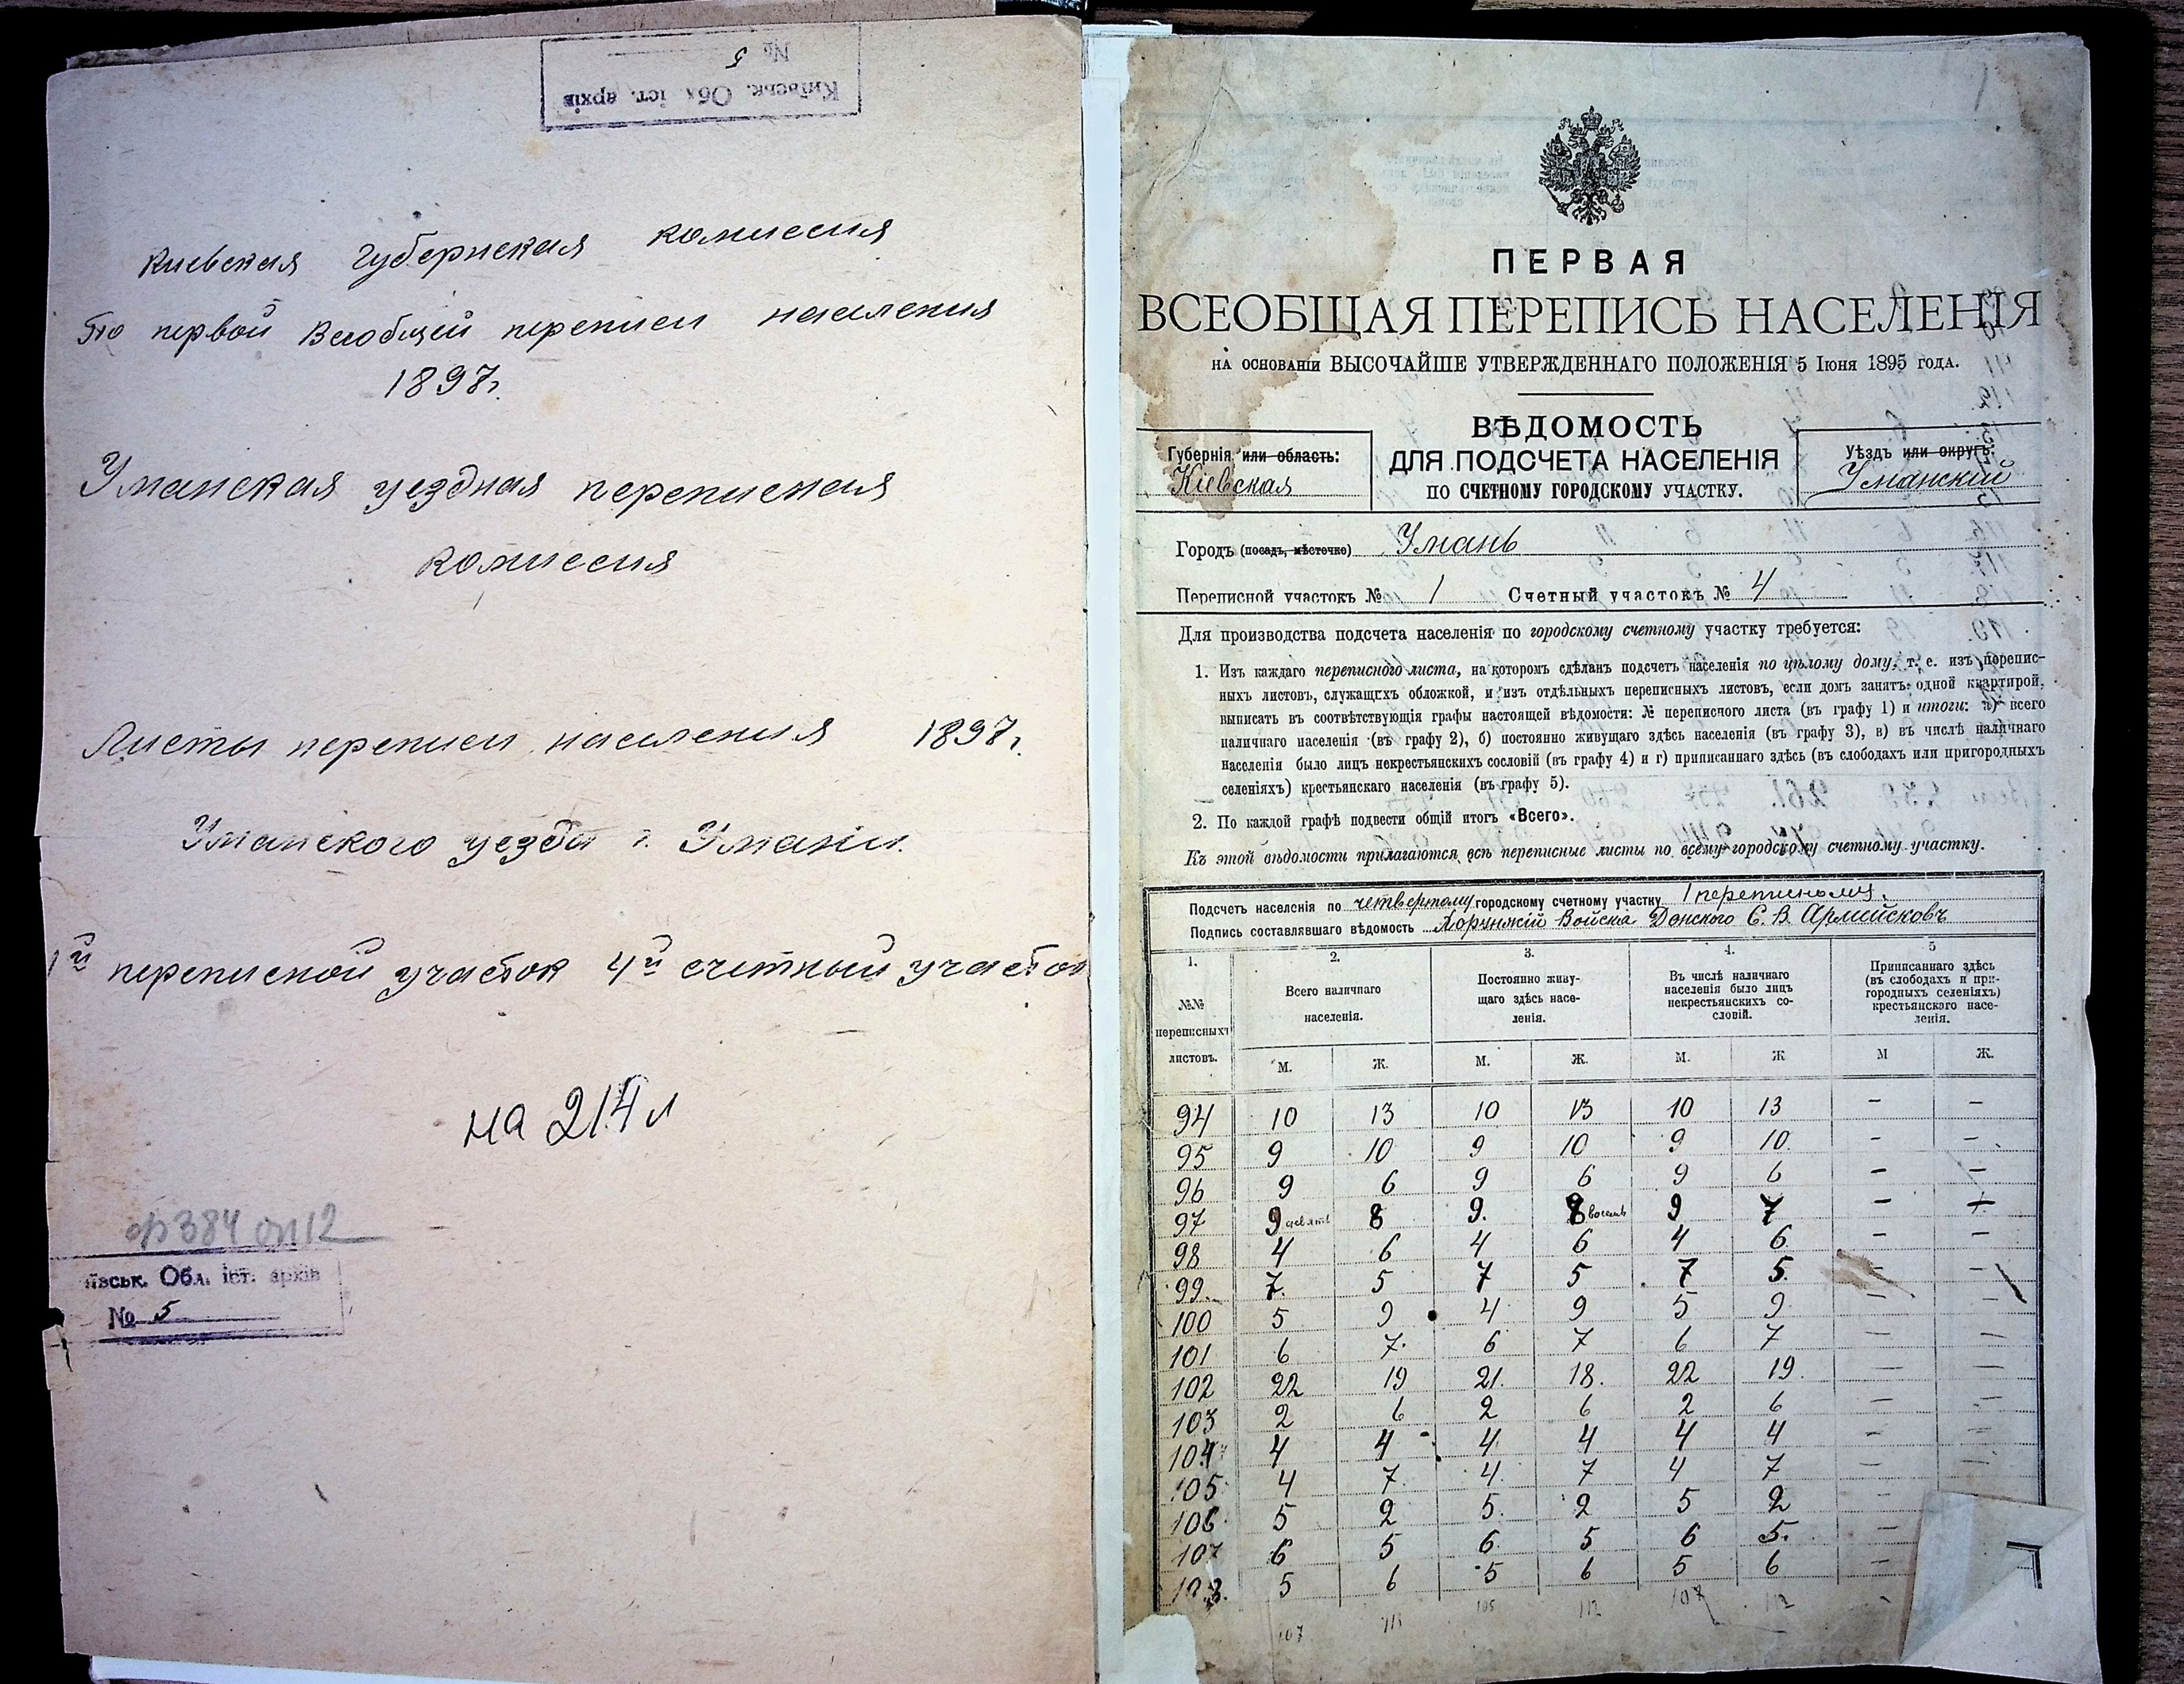 Київськ. Обл. іст. архів
№ 5
Киевская губернская комиссия
По первой Всеобщей переписи населения
1897г.
Уманская уездная переписная
комиссия
Листы переписи населения 1897г.
Уманского уезда г. Умани.
1й переписной участок 4й счетный участок
на 214 л
ф 384 оп 12
Обл. іст. архів
№ 5
ПЕРВАЯ
ВСЕОБЩАЯ ПЕРЕПИСЬ НАСЕЛЕНІЯ
НА ОСНОВАНІИ ВЫСОЧАЙШЕ УТВЕРЖДЕННАГО ПОЛОЖЕНІЯ 5 Іюня 1895 ГОДА.
ВѢДОМОСТЬ
ДЛЯ ПОДСЧЕТА НАСЕЛЕНІЯ
ПО СЧЕТНОМУ ГОРОДСКОМУ УЧАСТКУ.
Губернія или область:
Кіевская
Уѣздъ или округъ:
Уманскій
Городъ (посадъ, мѣстечко) Умань
Переписной участокъ № 1 Счетный участокъ № 4
Для производства подсчета населенія по городскому счетному участку требуется:
1. Изъ каждаго переписного листа, на которомъ сдѣланъ подсчетъ населенія по цѣлому дому, т. е. изъ перепис-
ныхъ листовъ, служащихъ обложкой, и изъ отдѣльныхъ переписныхъ листовъ, если домъ занятъ одной квартирой,
выписать въ соотвѣтствующія графы настоящей вѣдомости: № переписного листа (въ графу 1) и итоги: а) всего
наличнаго населенія (въ графу 2), б) постоянно живущаго здѣсь населенія (въ графу 3), в) въ числѣ наличнаго
населенія было лицъ некрестьянскихъ сословій (въ графу 4) и г) приписаннаго здѣсь (въ слободахъ или пригородныхъ
селеніяхъ) крестьянскаго населенія (въ графу 5).
2. По каждой графѣ подвести общій итогъ «Всего».
Къ этой вѣдомости прилагаются всѣ переписные листы по всему городскому счетному участку.
Подсчетъ населенія по четвертому городскому счетному участку 1 переписному
Подпись составлявшаго вѣдомость Хорунжій Войска Донского С. В. Армейсковъ
1. 2. 3. 4. 5
№№ переписныхъ листовъ.
Всего наличнаго населенія.
Постоянно живу-щаго здѣсь насе-ленія.
Въ числѣ наличнаго населенія было лицъ некрестьянскихъ со-словій.
Приписаннаго здѣсь (въ слободахъ и при-городныхъ селеніяхъ) крестьянскаго насе-ленія.
М. Ж. М. Ж. М. Ж М Ж.
94 10 13 10 13 10 13 - -
95 9 10 9 10 9 10 - -
96 9 6 9 6 9 6 - -
97 9 девять 8 9. 8 восемь 9 7 - +
98 4 6 4 6 4 6 - -
99 7. 5 7 5 7 5. - -
100 5 9 4 9 5 9 - -
101 6 7. 6 7 6 7 - -
102 22 19 21. 18. 22 19. - -
103 2 6 2 6 2 6 - -
104 4 4 4 4 4 4 - -
105 4 7 4. 7 4 7 - -
106 5 2 5. 2 5 2 -
107 6 5 6 5 6 5. -
108. 5 6 5 6 5 6 -
107 113 105 112 107 112